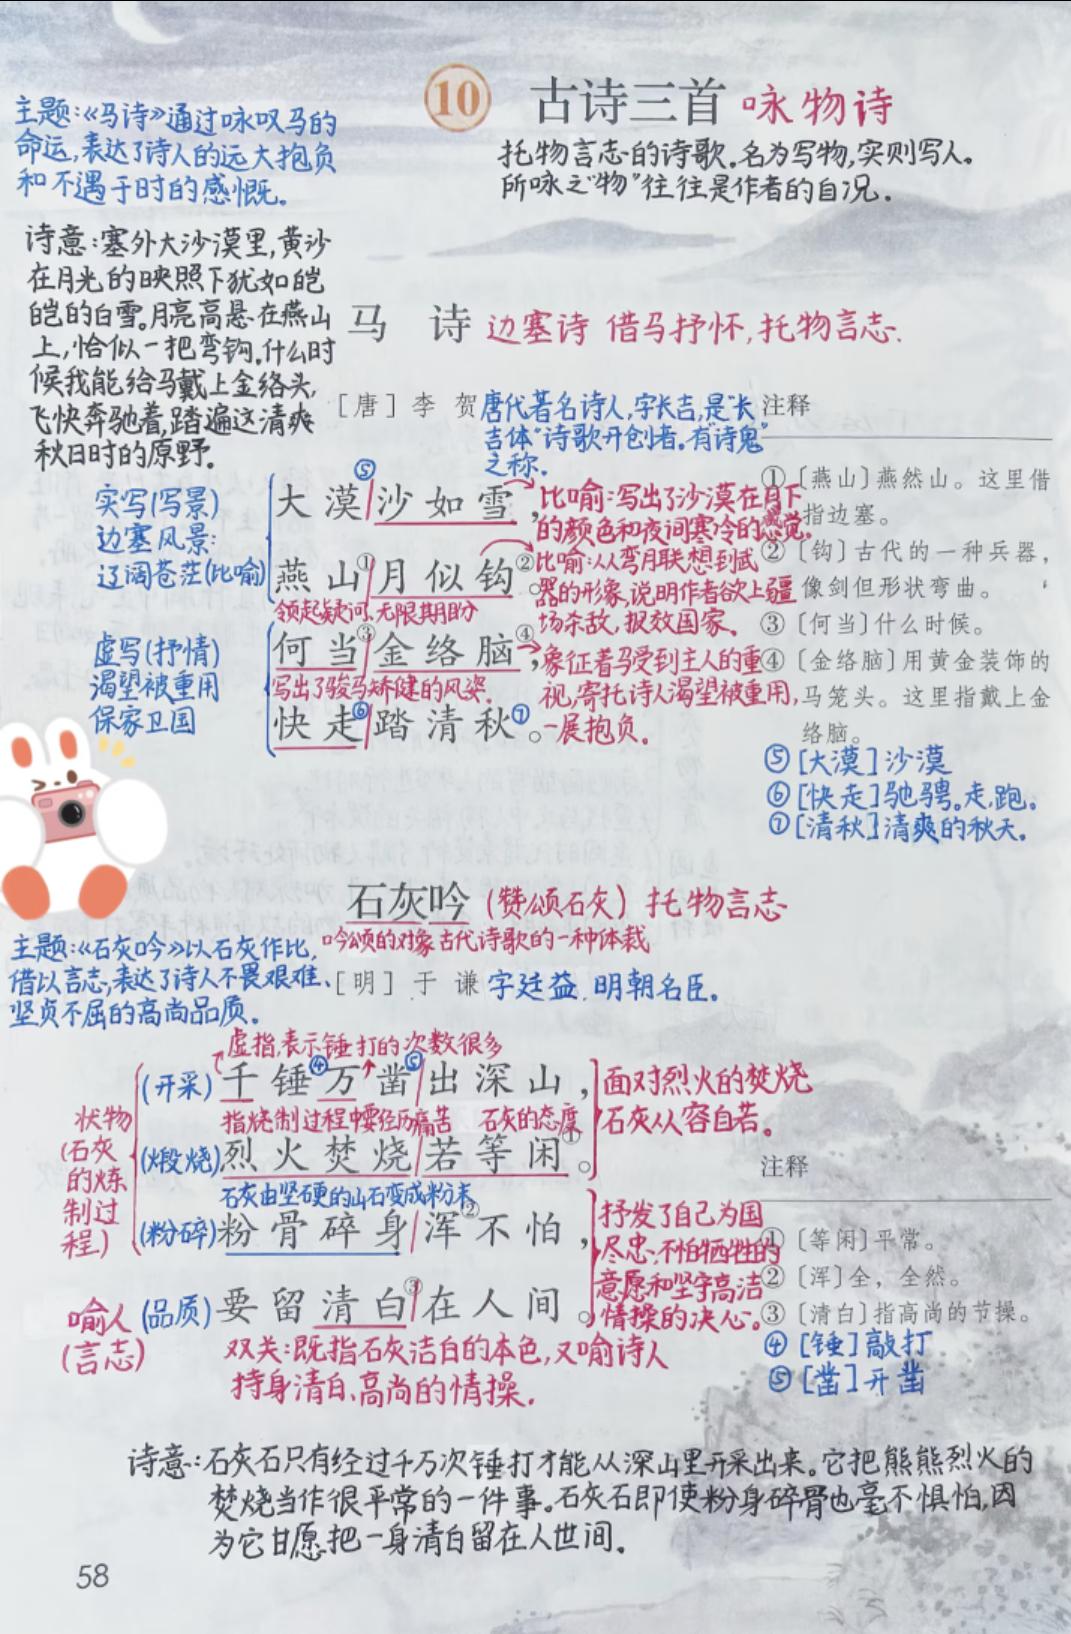 10 古诗三首 咏物诗
托物言志的诗歌。名为写物,实则写人。
所咏之“物”往往是作者的自况。
主题:《马诗》通过咏叹马的
命运,表达了诗人的远大抱负
和不遇于时的感慨。
诗意:塞外大沙漠里,黄沙
在月光的映照下犹如皑
皑的白雪。月亮高悬在燕山
上,恰似一把弯钩。什么时
候我能给马戴上金络头,
飞快奔驰着,踏遍这清爽
秋日时的原野。
马 诗 边塞诗 借马抒怀,托物言志.
[唐] 李 贺 唐代著名诗人,字长吉,是“长
吉体”诗歌开创者。有“诗鬼”
之称.
实写(写景)
边塞风景:
辽阔苍茫(比喻)
⑤
大漠/沙如雪,
比喻:写出了沙漠在月下
的颜色和夜间寒冷的感觉.
燕山①/月似钩②。
比喻:从弯月联想到武
器的形象,说明作者欲上疆
场杀敌,报效国家.
领起疑问,无限期盼
虚写(抒情)
渴望被重用
保家卫国
何当③/金络脑④,
象征着马受到主人的重
视,寄托诗人渴望被重用,
一展抱负.
写出了骏马矫健的风姿.
快走⑥/踏清秋⑦。
注释
①〔燕山〕燕然山。这里借
指边塞。
②〔钩〕古代的一种兵器,
像剑但形状弯曲。
③〔何当〕什么时候。
④〔金络脑〕用黄金装饰的
马笼头。这里指戴上金
络脑。
⑤[大漠]沙漠
⑥[快走]驰骋。走,跑。
⑦[清秋]清爽的秋天.
石灰吟 (赞颂石灰) 托物言志
吟颂的对象 古代诗歌的一种体裁
主题:《石灰吟》以石灰作比,
借以言志,表达了诗人不畏艰难、
坚贞不屈的高尚品质.
[明] 于 谦 字廷益.明朝名臣.
虚指,表示锤打的次数很多
状物
(石灰
的炼
制过
程)
(开采)千锤④万凿⑤/出深山,
指烧制过程中要经历痛苦 石灰的态度
(煅烧)烈火焚烧/若等闲①。
面对烈火的焚烧
石灰从容自若.
石灰由坚硬的山石变成粉末
(粉碎)粉骨碎身/浑②不怕,
喻人
(言志)
(品质)要留清白③/在人间。
抒发了自己为国
尽忠,不怕牺牲的
意愿和坚守高洁
情操的决心。
双关:既指石灰洁白的本色,又喻诗人
持身清白、高尚的情操.
注释
①〔等闲〕平常。
②〔浑〕全,全然。
③〔清白〕指高尚的节操。
④[锤]敲打
⑤[凿]开凿
诗意:石灰石只有经过千万次锤打才能从深山里开采出来。它把熊熊烈火的
焚烧当作很平常的一件事。石灰石即使粉身碎骨也毫不惧怕,因
为它甘愿把一身清白留在人世间.
58